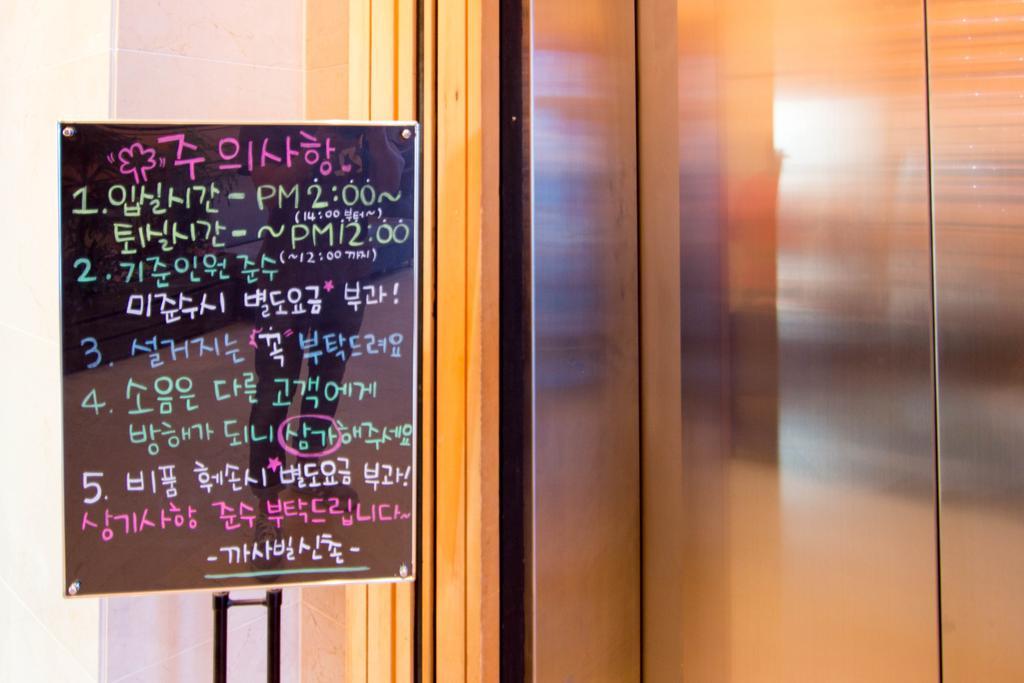 "주의사항"
1. 입실시간 - PM 2:00~
(14:00 부터~)
퇴실시간 - ~PM12:00
(~12:00 까지)
2. 기준인원 준수
미준수시 별도요금* 부과!
3. 설거지는 "꼭" 부탁드려요
4. 소음은 다른 고객에게
방해가 되니 삼가해주세요
5. 비품 훼손시 *별도요금 부과!
상기사항 준수 부탁드립니다~
-까사빌신촌-